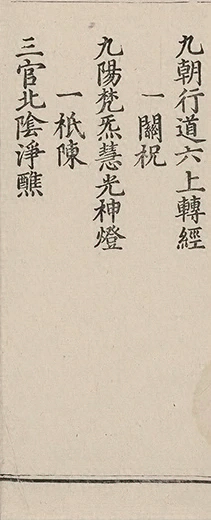 九朝行道六上轉經
一關祝
九陽梵炁慧光神燈
一祇陳
三官北陰淨醮